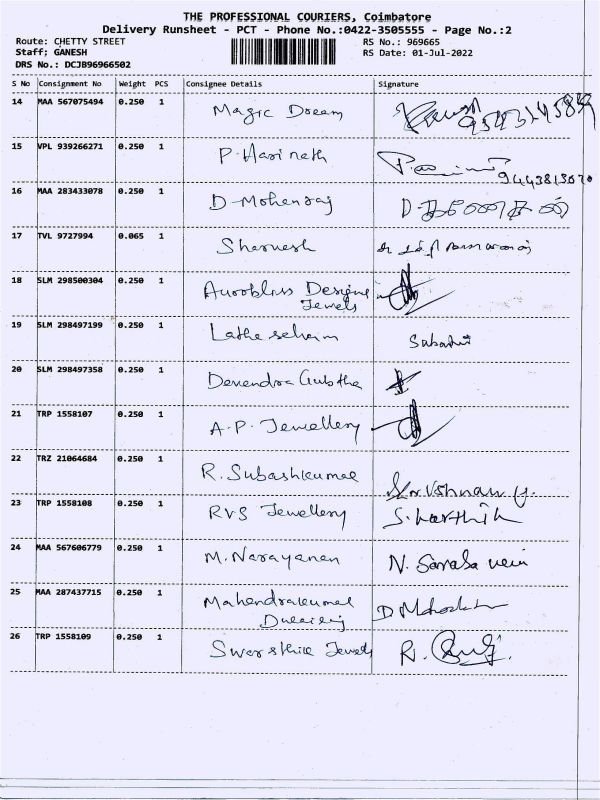 THE PROFESSIONAL COURIERS, Coimbatore
Delivery Runsheet - PCT - Phone No.:0422-3505555 - Page No.:2
Route: CHETTY STREET RS No.: 969665
Staff; GANESH RS Date: 01-Jul-2022
DRS No.: DCJB96966502
S No Consignment No Weight PCS Consignee Details Signature
14 MAA 567075494 0.250 1 Magic Dream
15 VPL 939266271 0.250 1 P. Harinath
16 MAA 283433078 0.250 1 D-Mohanraj
17 TVL 9727994 0.065 1 Sharvesh
18 SLM 298500304 0.250 1 Aurobliss Designs
Jewels
19 SLM 298497199 0.250 1
20 SLM 298497358 0.250 1 Devendra Gubtha
21 TRP 1558107 0.250 1 A.P. Jewellery
22 TRZ 21064684 0.250 1 R. Subashkumar
23 TRP 1558108 0.250 1 RVS Jewellery S. karthik
24 MAA 567606779 0.250 1 M. Narayanan
25 MAA 287437715 0.250 1 Mahendrakumar
26 TRP 1558109 0.250 1 Swarsthik Jewels